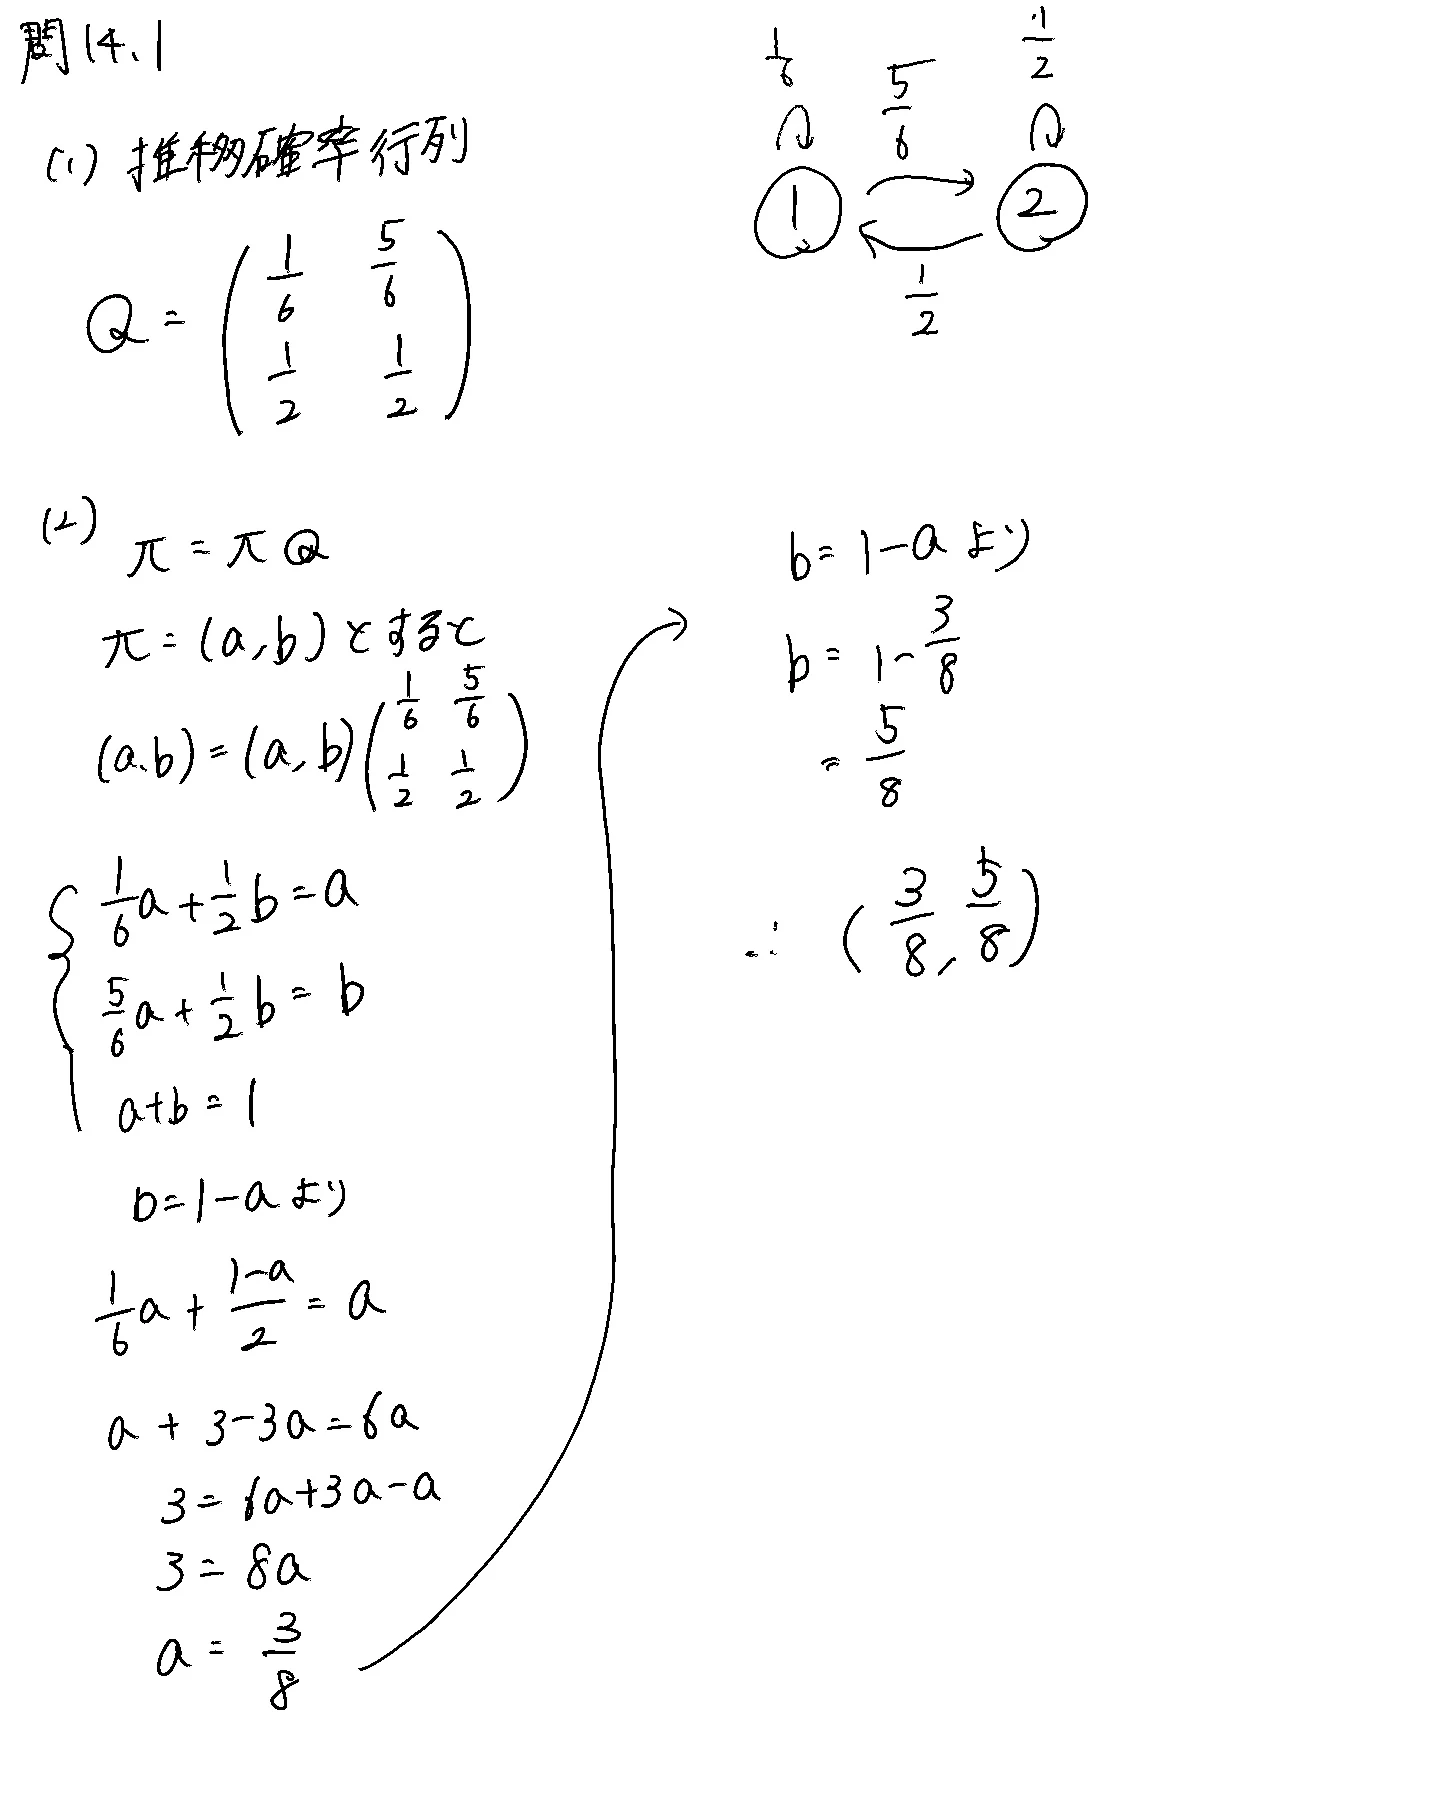 問14.1
(1) 推移確率行列
Q = ( 1/6 5/6
1/2 1/2 )
1/6 5/6 1/2
1 2
1/2
(2) π = πQ
π = (a, b) とすると
(a.b) = (a, b) ( 1/6 5/6
1/2 1/2 )
{ 1/6 a + 1/2 b = a
5/6 a + 1/2 b = b
a+b = 1
b = 1-a より
1/6 a + (1-a)/2 = a
a + 3-3a = 6a
3 = 6a+3a-a
3 = 8a
a = 3/8
b = 1-a より
b = 1 - 3/8
= 5/8
∴ ( 3/8, 5/8 )